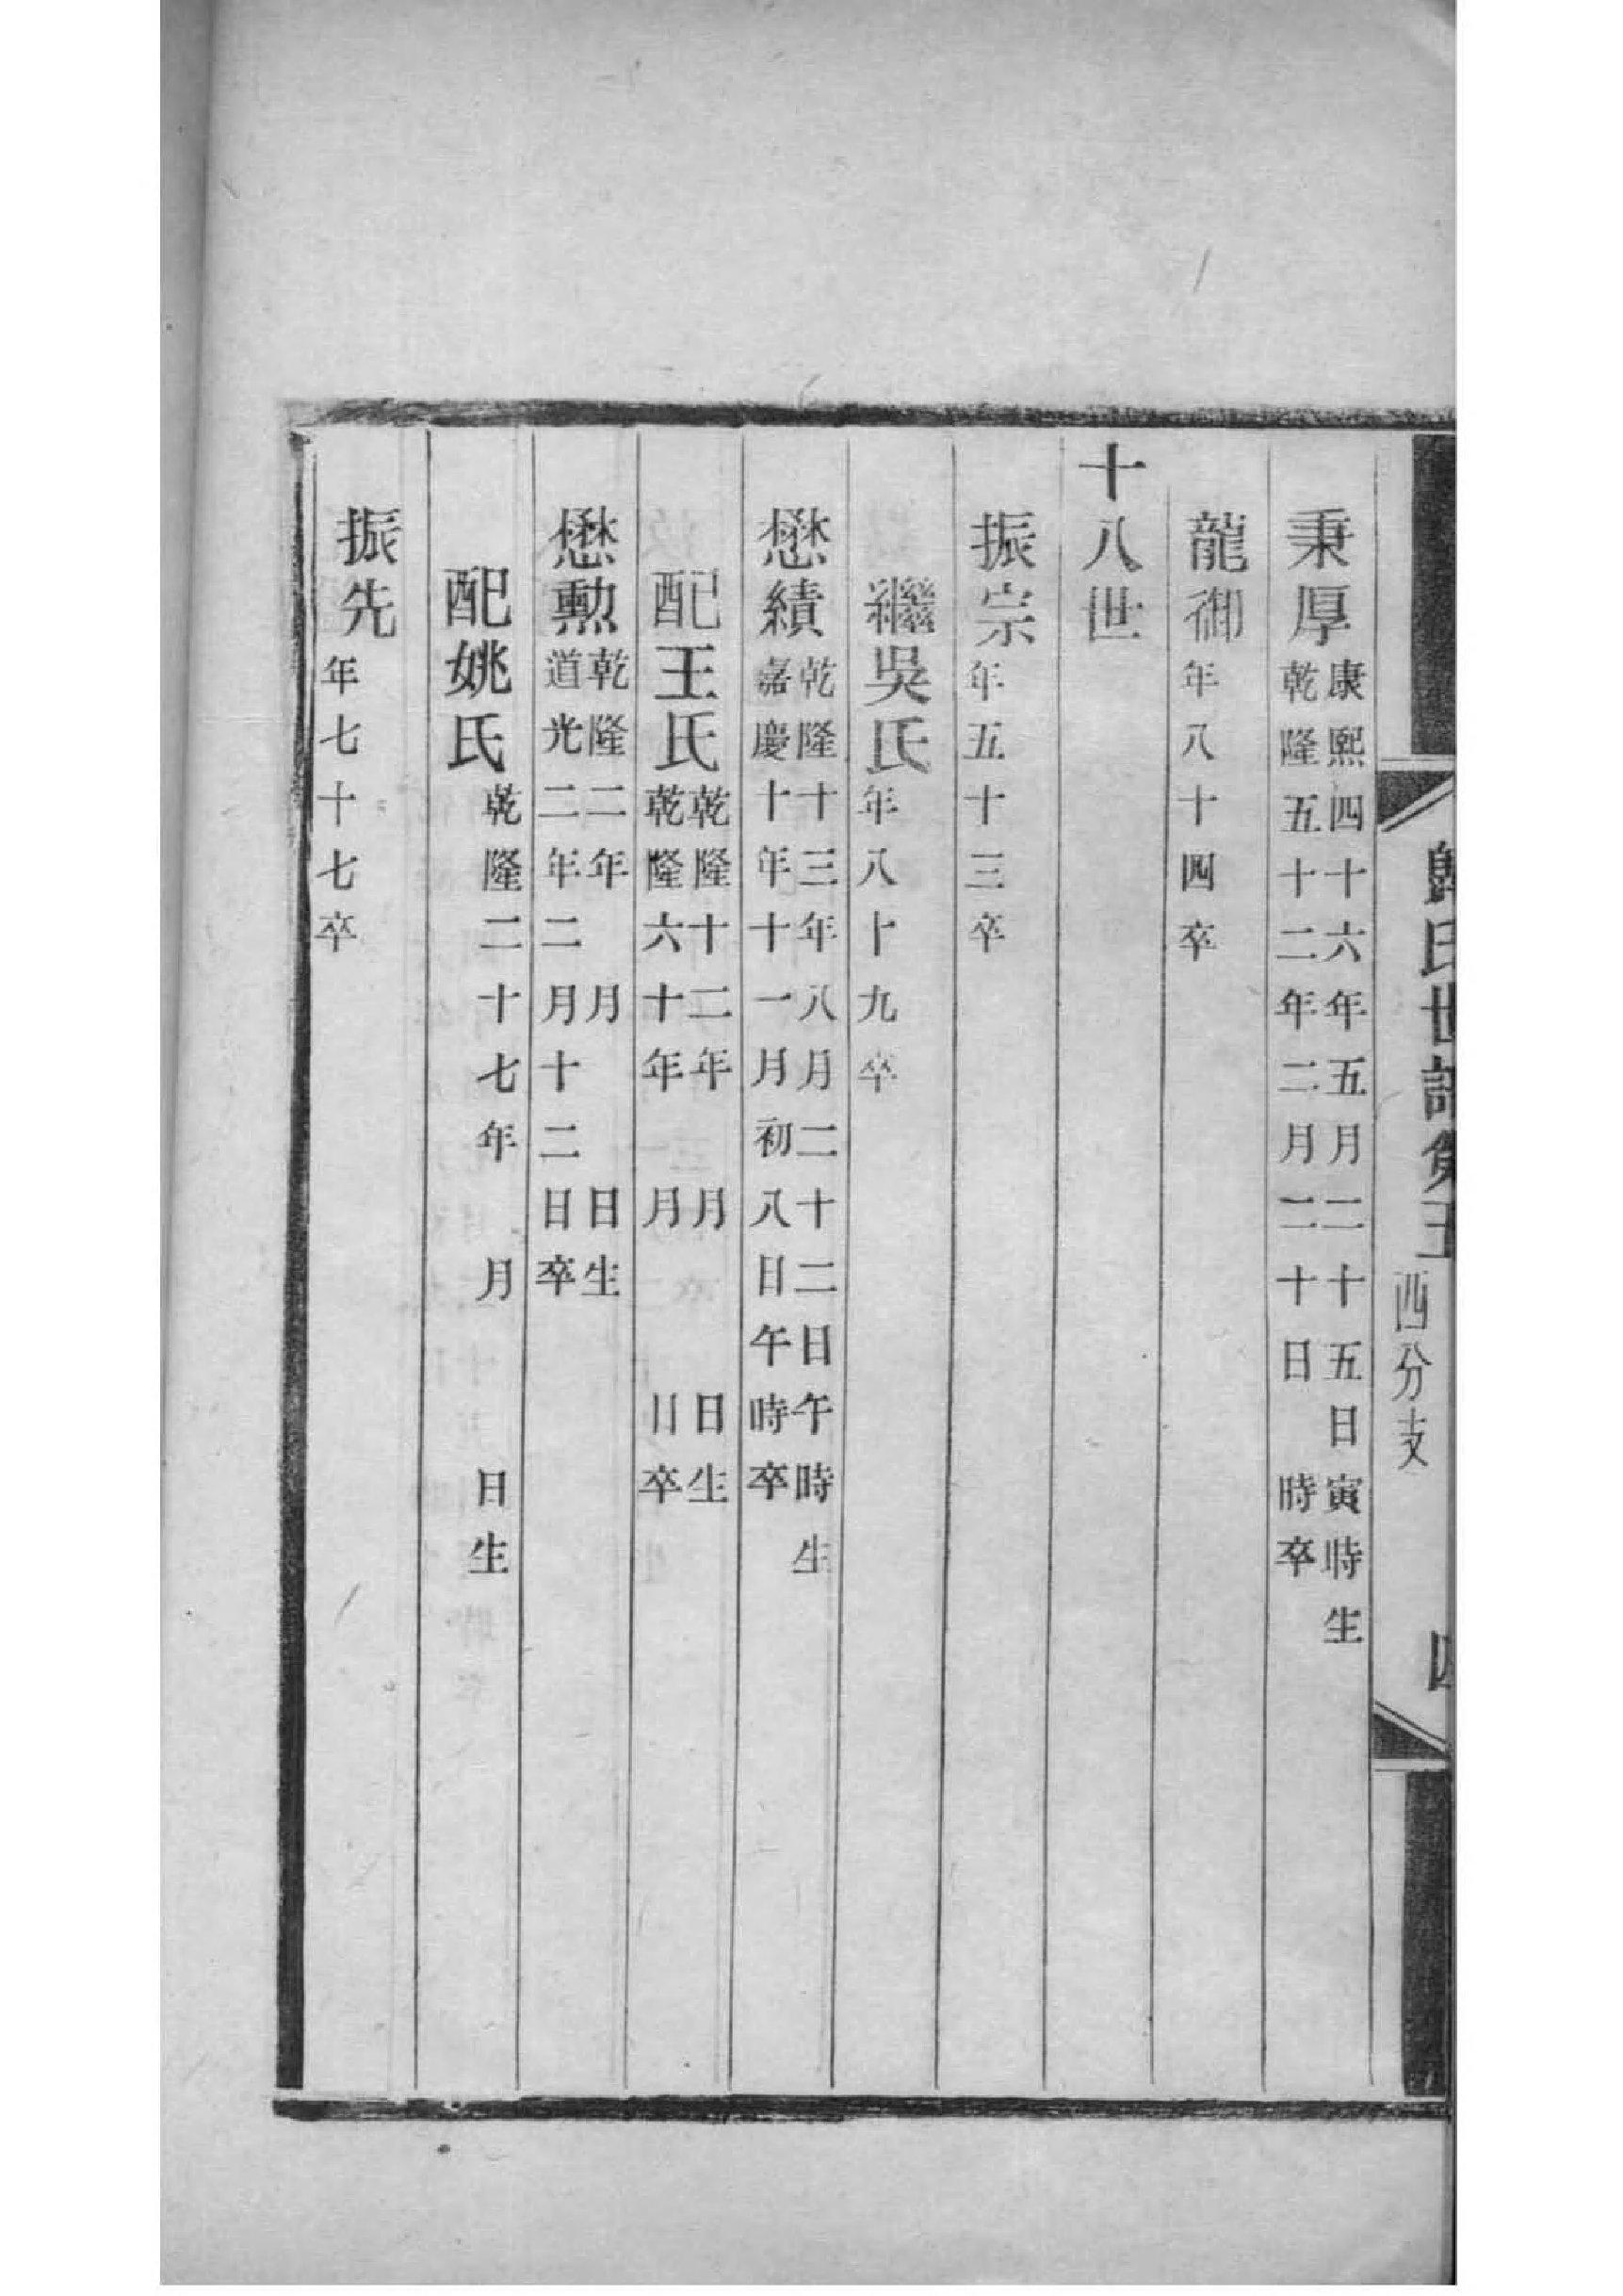 歸氏世譜第五 西分支 四
秉厚 康熙四十六年五月二十五日寅時生 乾隆五十二年二月二十日 時卒
龍御 年八十四卒
十八世
振宗 年五十三卒
繼吳氏 年八十九卒
懋績 乾隆十三年八月二十二日午時生 嘉慶十年十一月初八日午時卒
配王氏 乾隆十二年 月 日生 乾隆六十年 月 日卒
懋勲 乾隆二年 月 日生 道光二年二月十二日卒
配姚氏 乾隆二十七年 月 日生
振先 年七十七卒